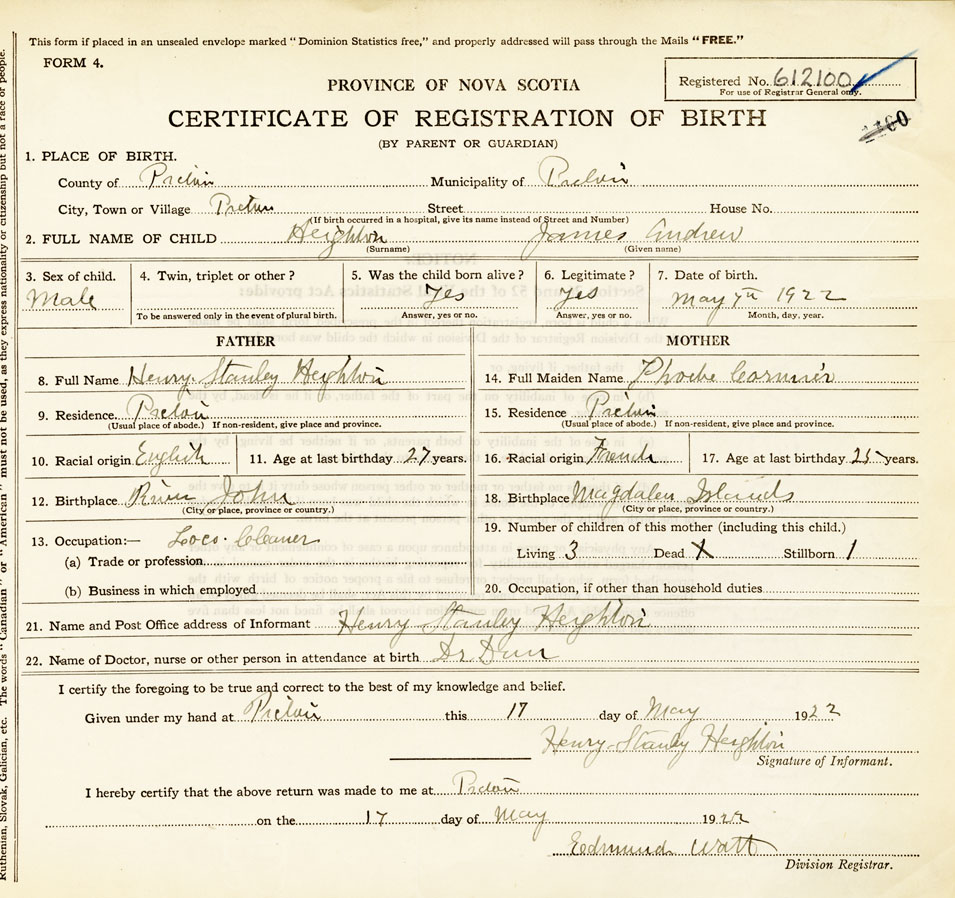 This form if placed in an unsealed envelope marked "Dominion Statistics free," and properly addressed will pass through the Mails "FREE."
FORM 4.
Registered No. 612100
For use of Registrar General only.
PROVINCE OF NOVA SCOTIA
CERTIFICATE OF REGISTRATION OF BIRTH
(BY PARENT OR GUARDIAN)
1. PLACE OF BIRTH.
County of Pictou Municipality of Pictou
City, Town or Village Pictou Street House No.
(If birth occurred in a hospital, give its name instead of Street and Number)
2. FULL NAME OF CHILD Heighton James Andrew
(Surname) (Given name)
3. Sex of child. 4. Twin, triplet or other? 5. Was the child born alive? 6. Legitimate? 7. Date of birth.
Male Yes Yes May 7th 1922
To be answered only in the event of plural birth. Answer, yes or no. Answer, yes or no. Month, day, year.
FATHER
8. Full Name Henry Stanley Heighton
9. Residence Pictou
(Usual place of abode.) If non-resident, give place and province.
10. Racial origin English 11. Age at last birthday 27 years.
12. Birthplace River John
(City or place, province or country.)
13. Occupation:— Loco. Cleaner
(a) Trade or profession
(b) Business in which employed
MOTHER
14. Full Maiden Name Phoebe Cormier
15. Residence Pictou
(Usual place of abode.) If non-resident, give place and province.
16. Racial origin French 17. Age at last birthday 25 years.
18. Birthplace Magdalen Islands
(City or place, province or country.)
19. Number of children of this mother (including this child.)
Living 3 Dead X Stillborn 1
20. Occupation, if other than household duties
21. Name and Post Office address of Informant Henry Stanley Heighton
22. Name of Doctor, nurse or other person in attendance at birth Dr Dunn
I certify the foregoing to be true and correct to the best of my knowledge and belief.
Given under my hand at Pictou this 17 day of May 1922
Henry Stanley Heighton
Signature of Informant.
I hereby certify that the above return was made to me at Pictou
on the 17 day of May 1922
Edmund Watt
Division Registrar.
Ruthenian, Slovak, Galician, etc. The words "Canadian" or "American" must not be used, as they express nationality or citizenship but not a race or people.